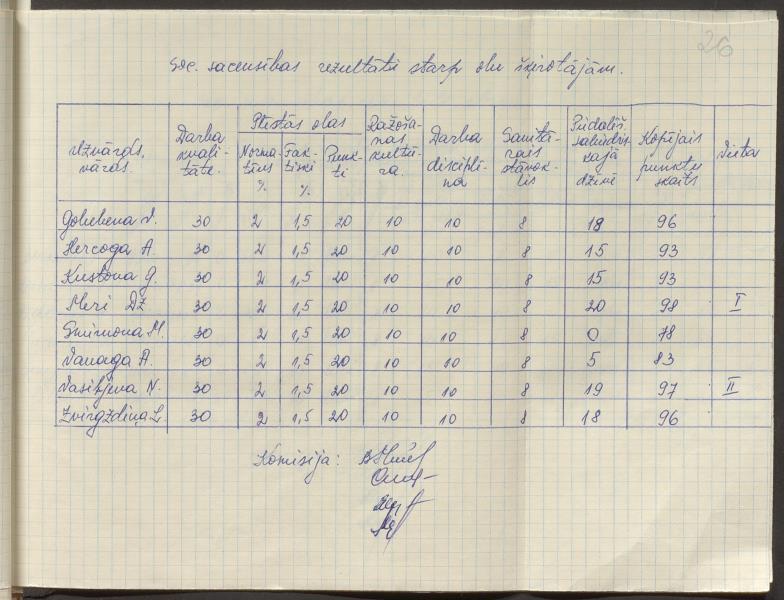 26
Soc. sacensības rezultāti starp olu šķirotājām.
Uzvārds, vārds. Darba kvali- tāte. Plēstās olas Norma- tīvs % Fak- tiski % Punk- ti Ražoša- nas kultū- ra. Darba disciplī- na Sanitā- rais stāvok- lis Piedalīš. sabiedris- kajā dzīvē Kopējais punktu skaits Vieta
30 2 1,5 20 10 10 8 18 96
Hercoga A. 30 2 1,5 20 10 10 8 15 93
Kustova G. 30 2 1,5 20 10 10 8 15 93
Meri Dž 30 2 1,5 20 10 10 8 20 98 I
Smirnova M. 30 2 1,5 20 10 10 8 0 78
Vanaga A. 30 2 1,5 20 10 10 8 5 83
Vasiļjeva N. 30 2 1,5 20 10 10 8 19 97 II
Zvirgzdiņa L. 30 2 1,5 20 10 10 8 18 96
Komisija: